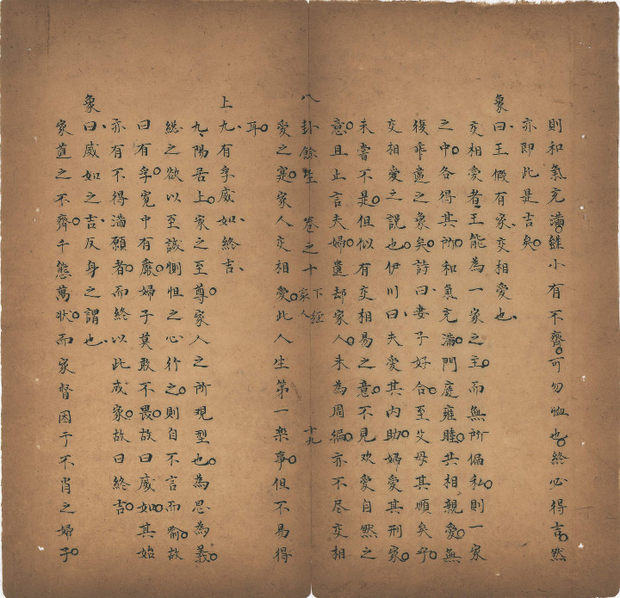 則和氣充滿雖小有不齊可勿恤也終必得吉然
亦即此是吉矣
象曰王假有家交相愛也
交相愛者王能為一家之主而無所偏私則一家
之中各得其所和氣充滿門庭雍睦共相親愛無
復乖違之象矣詩曰妻子好合至父母其順矣乎
交相愛之説也伊川曰夫愛其內助婦愛其刑家
未嘗不是但似有交相易之意不見歡愛自然之
意且止言夫婦遺却家人未為周徧亦不尽交相
八卦餘生 卷之十 下經 家人 十九
愛之寔家人交相愛此人生第一樂事但不易得
耳
上九有孚威如終吉
九陽居上家之至尊家人之所現型也為恩為義
総之欲以至誠惻怛之心行之則自不言而喻故
曰有孚寬中有嚴婦子莫敢不畏故曰威如其始
亦有不得滿願者而終以此成家故曰終吉
象曰威如之吉反身之謂也
家道之不齊千態萬狀而家督因于不肖之婦子